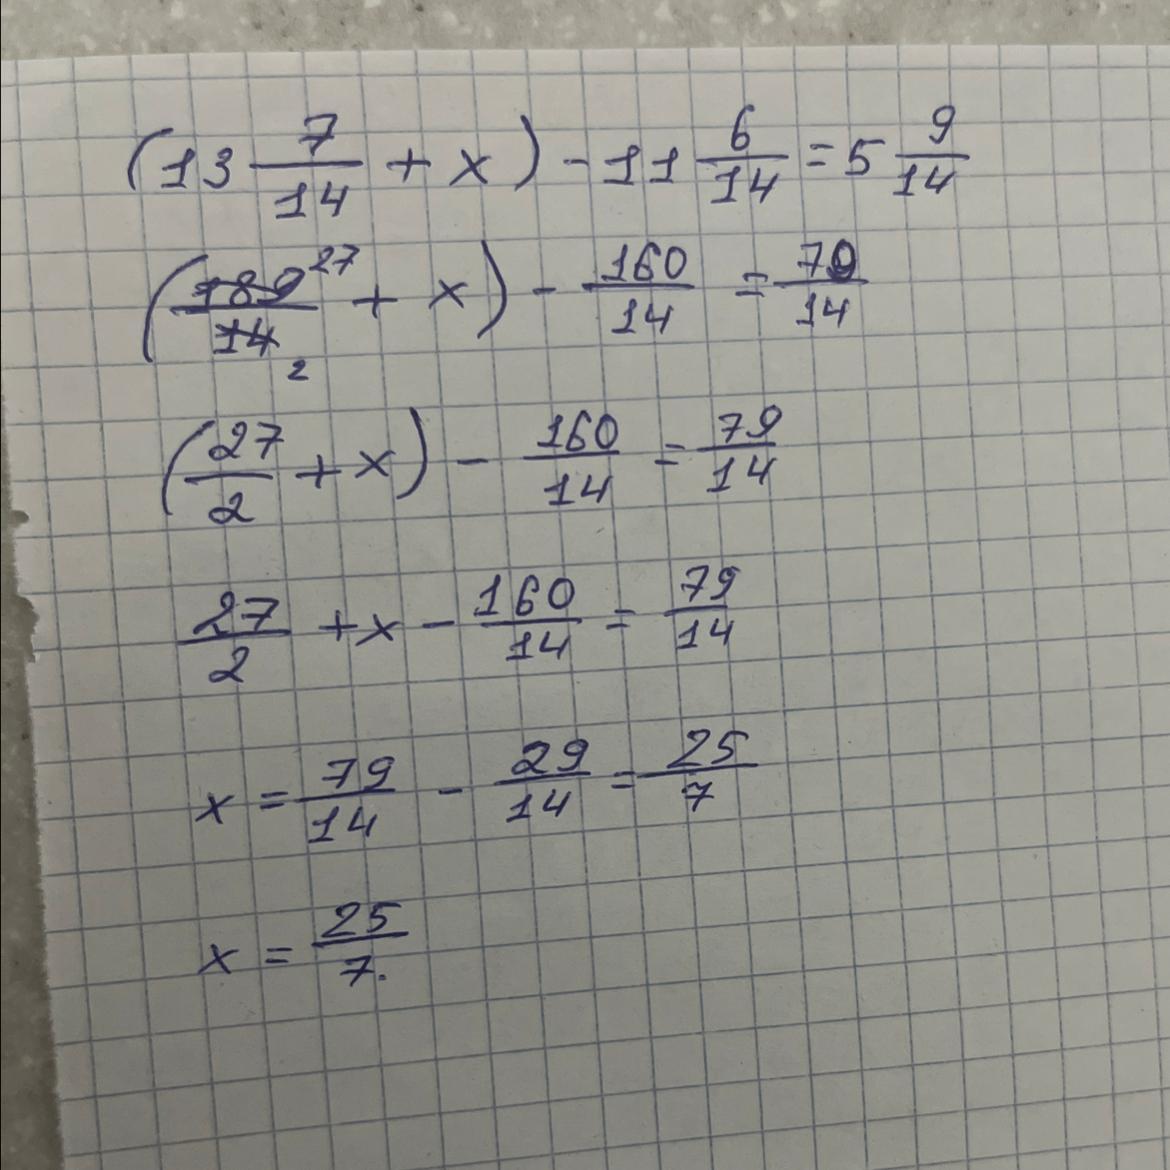 (13 7/14 + x) - 11 6/14 = 5 9/14
(189/14 27/2 + x) - 160/14 = 79/14
(27/2 + x) - 160/14 = 79/14
27/2 + x - 160/14 = 79/14
x = 79/14 - 29/14 = 25/7
x = 25/7.